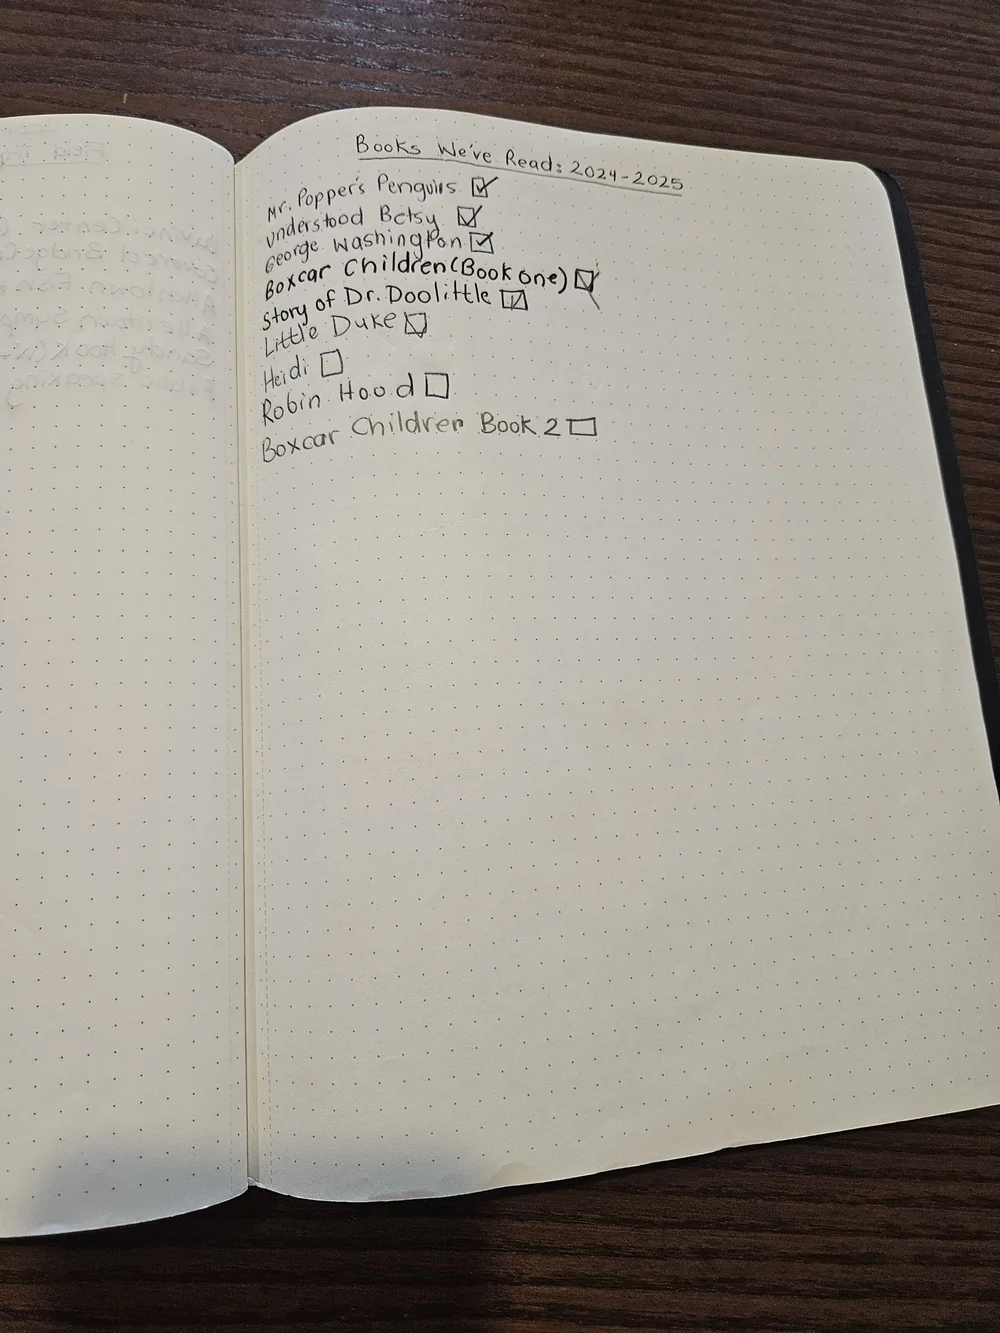 Books We've Read: 2024-2025
Mr. Popper's Penguins ☑
understood Betsy ☑
George Washington ☑
Boxcar Children (Book one) ☑
Story of Dr. Doolittle ☑
Little Duke ☑
Heidi ☐
Robin Hood ☐
Boxcar Children Book 2 ☐